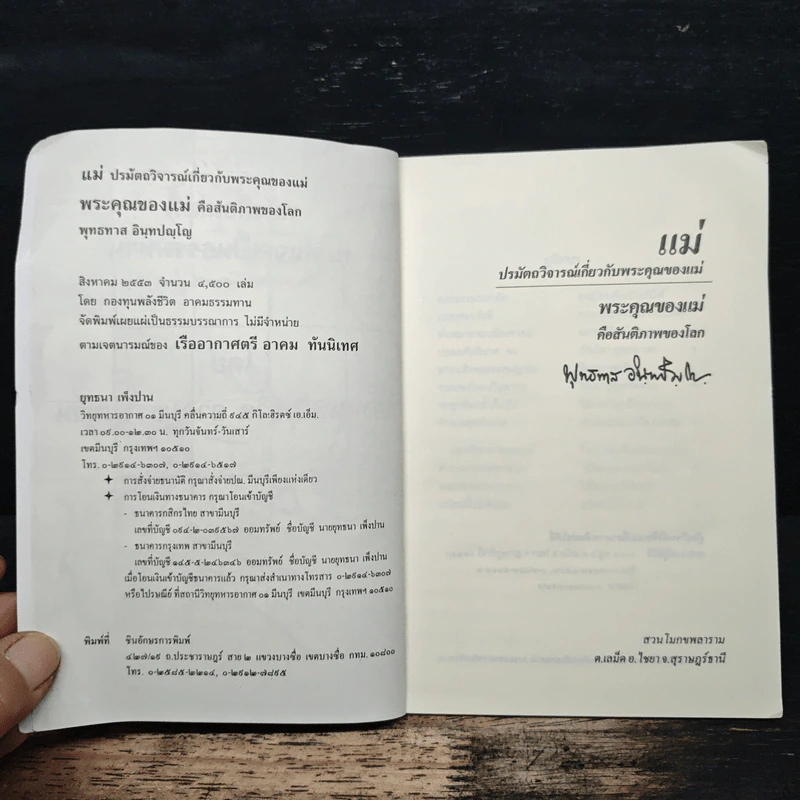 แม่ ปรมัตถวิจารณ์เกี่ยวกับพระคุณของแม่
พระคุณของแม่ คือสันติภาพของโลก
พุทธทาส อินฺทปญฺโญ
สิงหาคม ๒๕๕๓ จำนวน ๔,๕๐๐ เล่ม
โดย กองทุนพลังชีวิต อาคมธรรมทาน
จัดพิมพ์เผยแผ่เป็นธรรมบรรณาการ ไม่มีจำหน่าย
ตามเจตนารมณ์ของ เรืออากาศตรี อาคม ทันนิเทศ
ยุทธนา เพ็งปาน
วิทยุทหารอากาศ ๐๑ มีนบุรี คลื่นความถี่ ๙๔๕ กิโลเฮิรตซ์ เอ.เอ็ม.
เวลา ๐๙.๐๐-๑๒.๓๐ น. ทุกวันจันทร์-วันเสาร์
เขตมีนบุรี กรุงเทพฯ ๑๐๕๑๐
โทร. ๐-๒๙๑๔-๖๓๐๗, ๐-๒๙๑๔-๖๕๑๗
การสั่งจ่ายธนาณัติ กรุณาสั่งจ่ายปณ. มีนบุรีเพียงแห่งเดียว
การโอนเงินทางธนาคาร กรุณาโอนเข้าบัญชี
- ธนาคารกสิกรไทย สาขามีนบุรี
เลขที่บัญชี ๐๙๔-๒-๐๓๙๕๖๗ ออมทรัพย์ ชื่อบัญชี นายยุทธนา เพ็งปาน
- ธนาคารกรุงเทพ สาขามีนบุรี
เลขที่บัญชี ๑๔๕-๕-๒๔๖๓๔๖ ออมทรัพย์ ชื่อบัญชี นายยุทธนา เพ็งปาน
เมื่อโอนเงินเข้าบัญชีธนาคารแล้ว กรุณาส่งสำเนาทางโทรสาร ๐-๒๙๑๔-๖๓๐๗
หรือไปรษณีย์ ที่สถานีวิทยุทหารอากาศ ๐๑ มีนบุรี เขตมีนบุรี กรุงเทพฯ ๑๐๕๑๐
พิมพ์ที่ ชินอักษรการพิมพ์
๔๒๗/๑๙ ถ.ประชาราษฎร์ สาย ๒ แขวงบางซื่อ เขตบางซื่อ กทม. ๑๐๘๐๐
โทร. ๐-๒๕๘๕-๒๒๑๔, ๐-๒๙๑๒-๗๘๙๕
แม่
ปรมัตถวิจารณ์เกี่ยวกับพระคุณของแม่
พระคุณของแม่
คือสันติภาพของโลก
พุทธทาส อินฺทปญฺโญ
สวนโมกขพลาราม
ต.เลม็ด อ.ไชยา จ.สุราษฎร์ธานี